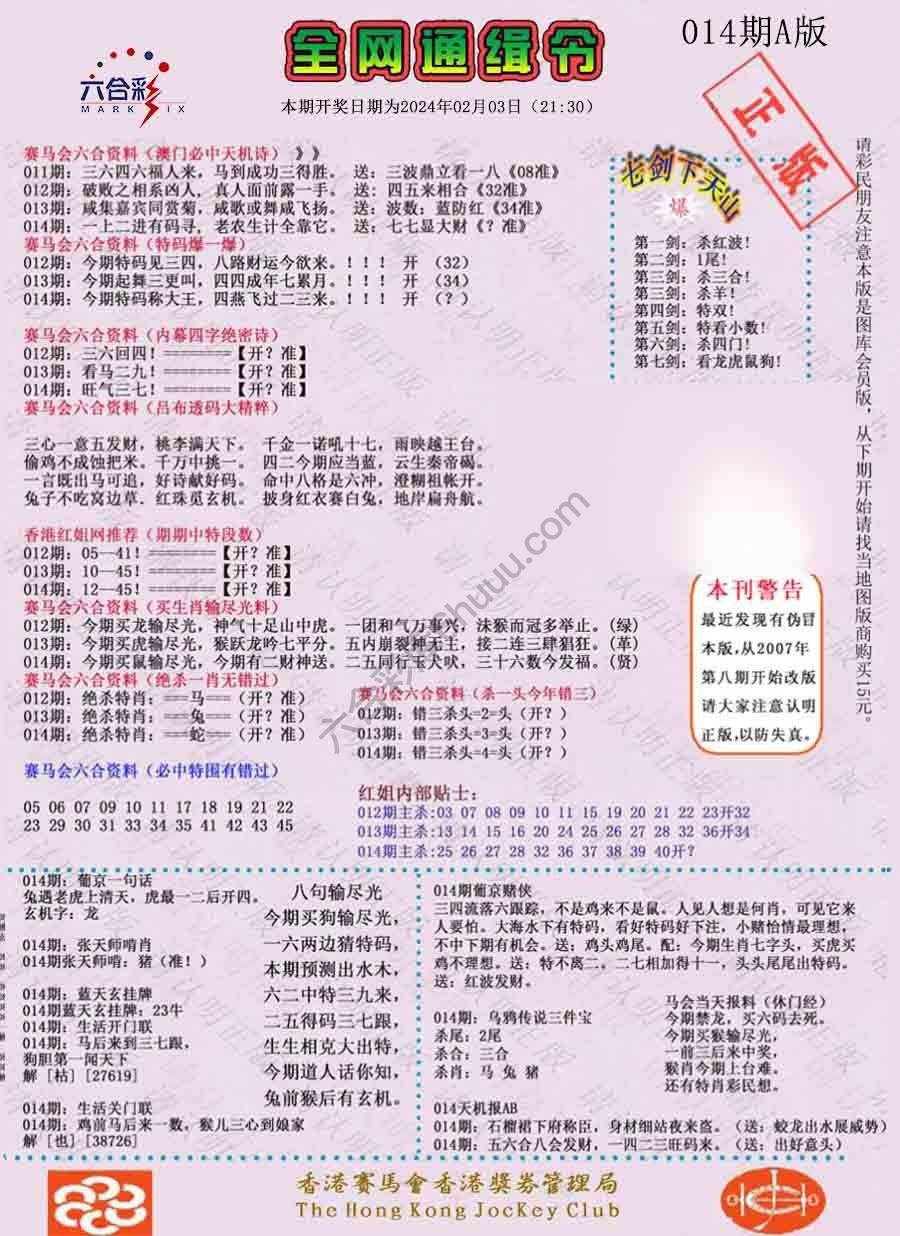 014期A版
全网通缉令
六合彩
MARK SIX
本期开奖日期为2024年02月03日（21:30）
正版
赛马会六合资料（澳门必中天机诗）》》
011期：三六四六福人来，马到成功三得胜。 送：三波鼎立看一八《08准》
012期：破败之相系凶人，真人面前露一手。 送：四五来相合《32准》
013期：咸集嘉宾同赏菊，咸歌或舞咸飞扬。 送：波数：蓝防红《34准》
014期：一上二进有码寻，老农生计全靠它。 送：七七显大财《？准》
赛马会六合资料（特码爆一爆）
012期：今期特码见三四，八路财运今欲来。！！！ 开 （32）
013期：今期起舞三更叫，四四成年七累月。！！！ 开 （34）
014期：今期特码称大王，四燕飞过二三来。！！！ 开 （？）
赛马会六合资料（内幕四字绝密诗）
012期：三六回四！========【开？准】
013期：看马二九！========【开？准】
014期：旺气三七！========【开？准】
赛马会六合资料（吕布透码大精粹）
三心一意五发财，桃李满天下。 千金一诺吼十七，雨映越王台。
偷鸡不成蚀把米。千万中挑一。 四二今期应当蓝，云生秦帝碣。
一言既出马可追，好诗献好码。 命中八格是六冲，澄糊祖帐开。
兔子不吃窝边草．红珠觅玄机。 披身红衣赛白兔，地岸扁舟航。
香港红姐网推荐（期期中特段数）
012期：05—41！========【开？准】
013期：10—45！========【开？准】
014期：12—45！========【开？准】
赛马会六合资料（买生肖输尽光料）
012期：今期买龙输尽光，神气十足山中虎。一团和气万事兴，沫猴而冠多举止。（绿）
013期：今期买虎输尽光，猴跃龙吟七平分。五内崩裂神无主，接二连三肆猖狂。（革）
014期：今期买鼠输尽光，今期有二财神送。二五同行玉犬吠，三十六数今发福。（贤）
赛马会六合资料（绝杀一肖无错过）
012期：绝杀特肖：===马===（开？准）
013期：绝杀特肖：===兔===（开？准）
014期：绝杀特肖：===蛇===（开？准）
赛马会六合资料（杀一头今年错三）
012期：错三杀头=2=头（开？）
013期：错三杀头=3=头（开？）
014期：错三杀头=4=头（开？）
赛马会六合资料（必中特围有错过）
05 06 07 09 10 11 17 18 19 21 22
23 29 30 31 33 34 35 41 42 43 45
红姐内部贴士：
012期主杀:03 07 08 09 10 11 15 19 20 21 22 23开32
013期主杀:13 14 15 16 20 24 25 26 27 28 32 36开34
014期主杀:25 26 27 28 32 36 37 38 39 40开？
七剑下天山
爆
第一剑：杀红波！
第二剑：1尾！
第三剑：杀三合！
第三剑：杀羊！
第四剑：特双！
第五剑：特看小数！
第六剑：杀四门！
第七剑：看龙虎鼠狗！
请彩民朋友注意本版是图库会员版，从下期开始请找当地图版商购买15元。
本刊警告
最近发现有伪冒
本版,从2007年
第八期开始改版
请大家注意认明
正版,以防失真。
014期：葡京一句话
兔遇老虎上清天，虎最一二后开四。
玄机字：龙
014期：张天师啃肖
014期张天师啃：猪（准！）
014期：蓝天玄挂牌
014期蓝天玄挂牌：23牛
014期：生活开门联
014期：马后来到三七跟，
狗胆第一闻天下
解［枯］[27619]
014期：生活关门联
014期：鸡前马后来一数，猴儿三心到娘家
解［也］[38726]
八句输尽光
今期买狗输尽光，
一六两边猜特码，
本期预测出水木，
六二中特三九来，
二五得码三七跟，
生生相克大出特，
今期道人话你知，
兔前猴后有玄机。
014期葡京赌侠
三四流落六跟踪，不是鸡来不是鼠。人见人想是何肖，可见它来
人要怕。大海水下有特码，看好特码好下注，小赌怡情最理想，
不中下期有机会。送：鸡头鸡尾。配：今期生肖七字头，买虎买
鸡不理想。送：特不离二。二七相加得十一，头头尾尾出特码。
送：红波发财。
014期：乌鸦传说三件宝
杀尾：2尾
杀合：三合
杀肖：马 兔 猪
马会当天报料（休门经）
今期禁龙，买六码去死。
今期买猴输尽光，
一前三后来中奖，
猴肖今期上台难。
还有特肖彩民想。
014天机报AB
014期：石榴裙下府称臣，身材细站夜来盗。（送：蛟龙出水展威势）
014期：五六合八会发财，一四二三旺码来。（送：出好意头）
香港賽馬會香港獎券管理局
The Hong Kong JocKey Club